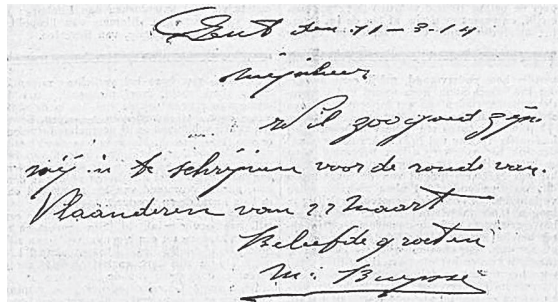 Gent den 11-3-14
mijnheer
Wil zoo goed zijn
mij in te schrijven voor de ronde van
Vlaanderen van 22 maart
Beleefde groeten
M. Buysse